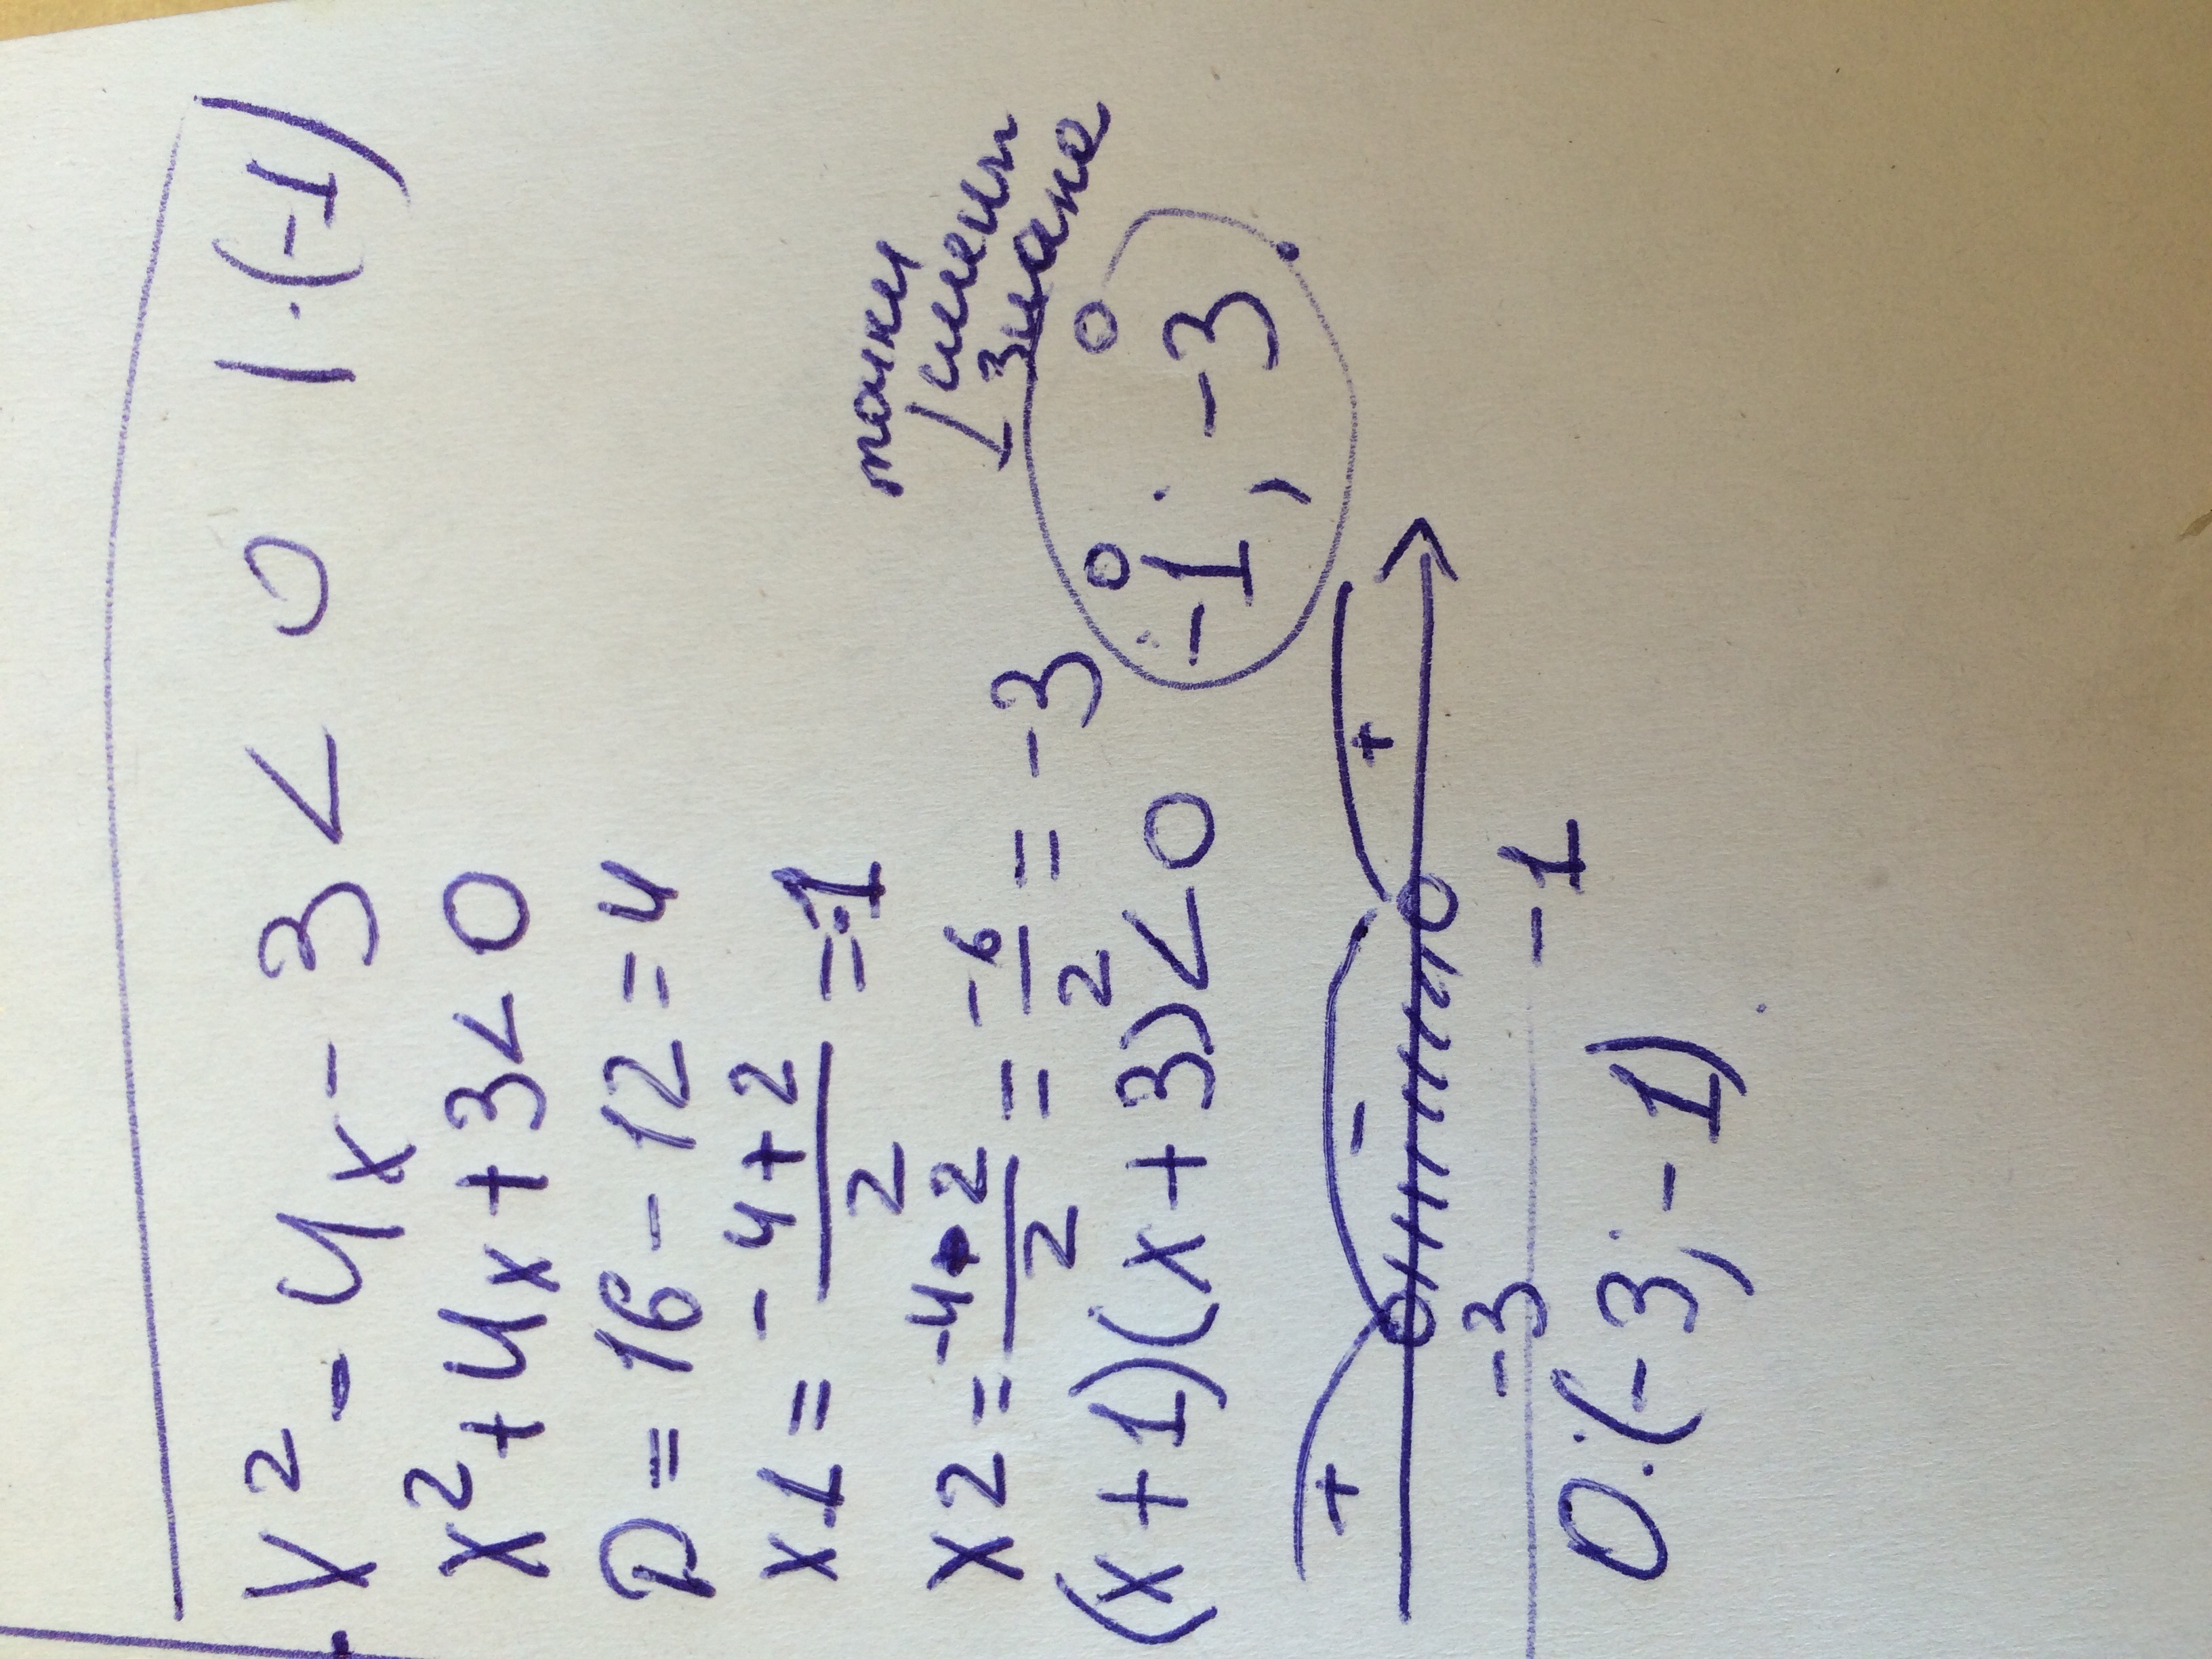 -x² - 4x - 3 < 0 | · (-1)
x² + 4x + 3 < 0
D = 16 - 12 = 4
x1 = \frac{-4+2}{2} = -1
x2 = \frac{-4-2}{2} = \frac{-6}{2} = -3
точки
смены
знака
(x+1)(x+3)<0
-1; -3
+ - +
-3 -1
О:(-3; -1)